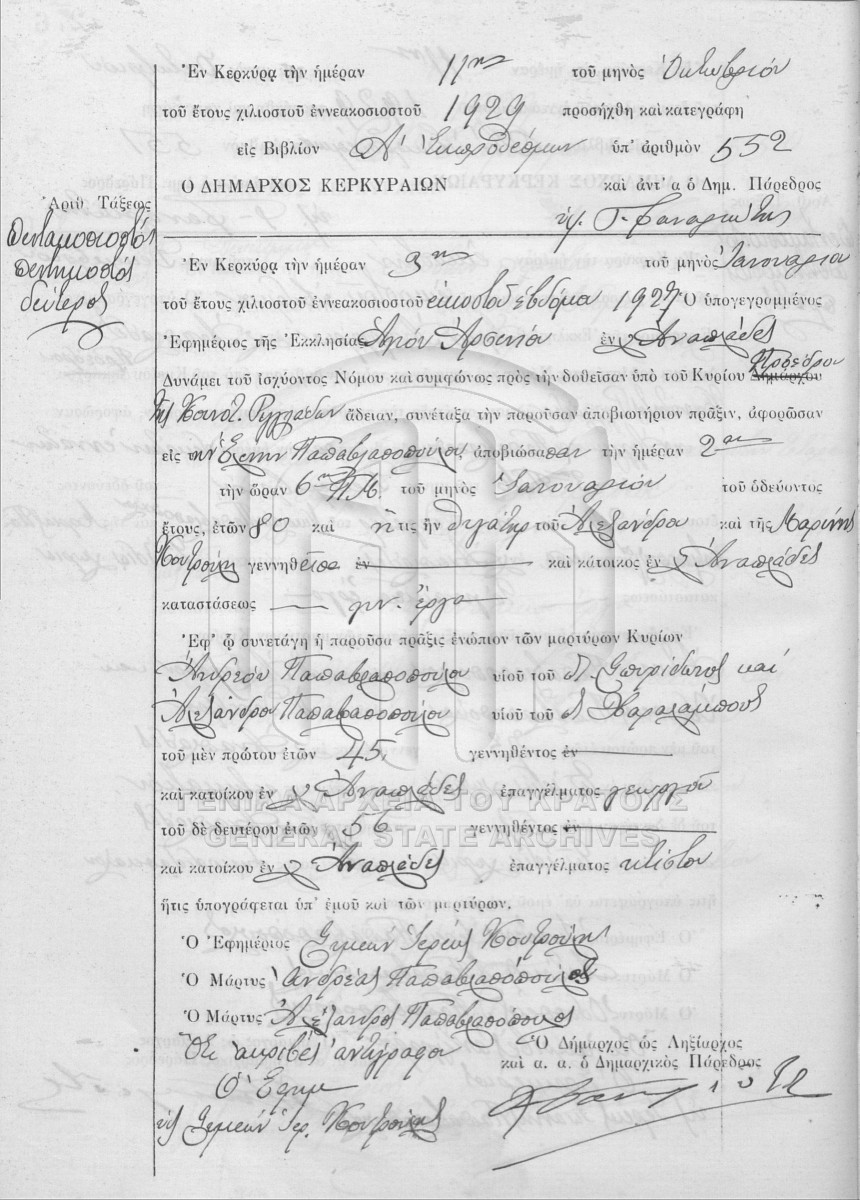 Ἐν Κερκύρᾳ τὴν ἡμέραν 11ην τοῦ μηνὸς Ὀκτωβρίου
τοῦ ἔτους χιλιοστοῦ ἐννεακοσιοστοῦ 1929 προσήχθη καὶ κατεγράφη
εἰς Βιβλίον Α' Ἐκπροθέσμων ὑπ' ἀριθμὸν 552
Ο ΔΗΜΑΡΧΟΣ ΚΕΡΚΥΡΑΙΩΝ καὶ ἀντ' α ὁ Δημ. Πάρεδρος
Ἀριθ Τάξεως
πεντακοσιοστός
πεντηκοστός
δεύτερος
Ἐν Κερκύρᾳ τὴν ἡμέραν 3ην τοῦ μηνὸς Ἰανουαρίου
τοῦ ἔτους χιλιοστοῦ ἐννεακοσιοστοῦ εἰκοστοῦ ἑβδόμου 1927 Ὁ ὑπογεγραμμένος
Ἐφημέριος τῆς Ἐκκλησίας Ἁγίου Ἀρσενίου ἐν χ Ἀναπλάδες
Δυνάμει τοῦ ἰσχύοντος Νόμου καὶ συμφώνως πρὸς τὴν δοθεῖσαν ὑπὸ τοῦ Κυρίου Δημάρχου Προέδρου
τῆς Κοινότ. Ριγγλάδων ἄδειαν, συνέταξα τὴν παροῦσαν ἀποβιωτήριον πρᾶξιν, ἀφορῶσαν
εἰς την Ἑλένην Παπαβλασοπούλου ἀποβιώσασαν τὴν ἡμέραν 2αν
τὴν ὥραν 6ην Π.Μ. τοῦ μηνὸς Ἰανουαρίου τοῦ ὁδεύοντος
ἔτους, ἐτῶν 80 καὶ ἥτις ἦν θυγάτηρ τοῦ Ἀλεξάνδρου καὶ τῆς Μαρίνης
Κουτρούλη γεννηθεῖσα ἐν καὶ κάτοικος ἐν χ Ἀναπλάδες
καταστάσεως γυν. ἔργα
Ἐφ' ᾧ συνετάγη ἡ παροῦσα πρᾶξις ἐνώπιον τῶν μαρτύρων Κυρίων
Ἀνδρέου Παπαβλασοπούλου υἱοῦ τοῦ π. Σπυρίδωνος καὶ
Ἀλεξάνδρου Παπαβλασοπούλου υἱοῦ τοῦ π Χαραλάμπους
τοῦ μὲν πρώτου ἐτῶν 45 γεννηθέντος ἐν
καὶ κατοίκου ἐν χ Ἀναπλάδες ἐπαγγέλματος γεωργοῦ
ΓΕΝΙΚΑ ΑΡΧΕΙΑ ΤΟΥ ΚΡΑΤΟΥΣ
τοῦ δὲ δευτέρου ἐτῶν 56 γεννηθέντος ἐν
GENERAL STATE ARCHIVES
καὶ κατοίκου ἐν χ Ἀναπλάδες ἐπαγγέλματος κτίστου
ἥτις ὑπογράφεται ὑπ' ἐμοῦ καὶ τῶν μαρτύρων.
Ὁ Ἐφημέριος Συμεών Ἱερεύς Κουτρούλης
Ὁ Μάρτυς Ἀνδρέας Παπαβλασόπουλος
Ὁ Μάρτυς Ἀλέξανδρος Παπαβλασόπουλος
Ὅτι ἀκριβές ἀντίγραφον
Ὁ Δήμαρχος ὡς Ληξίαρχος
καὶ α. α. ὁ Δημαρχικὸς Πάρεδρος
Ὁ Ἐφημ
ὑπ Συμεών Ἱερ. Κουτρούλης